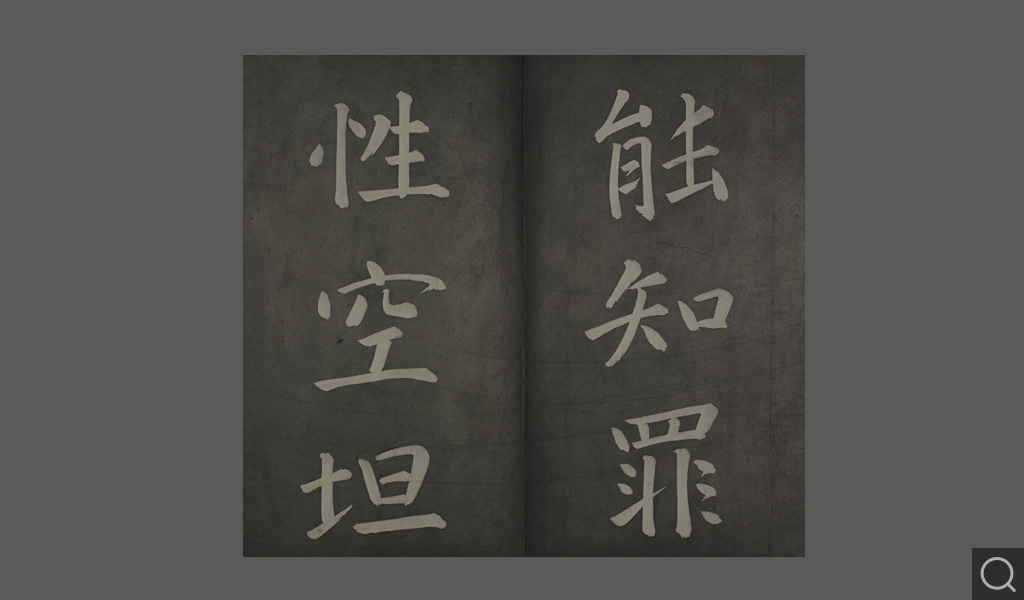 能知罪
性空坦